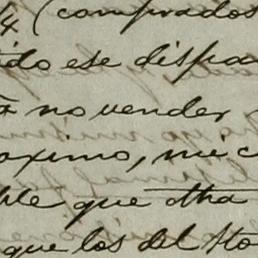 4 (comprados
ido ese dispa
no vender
aximo, me c
ble que otra
que los del Sto